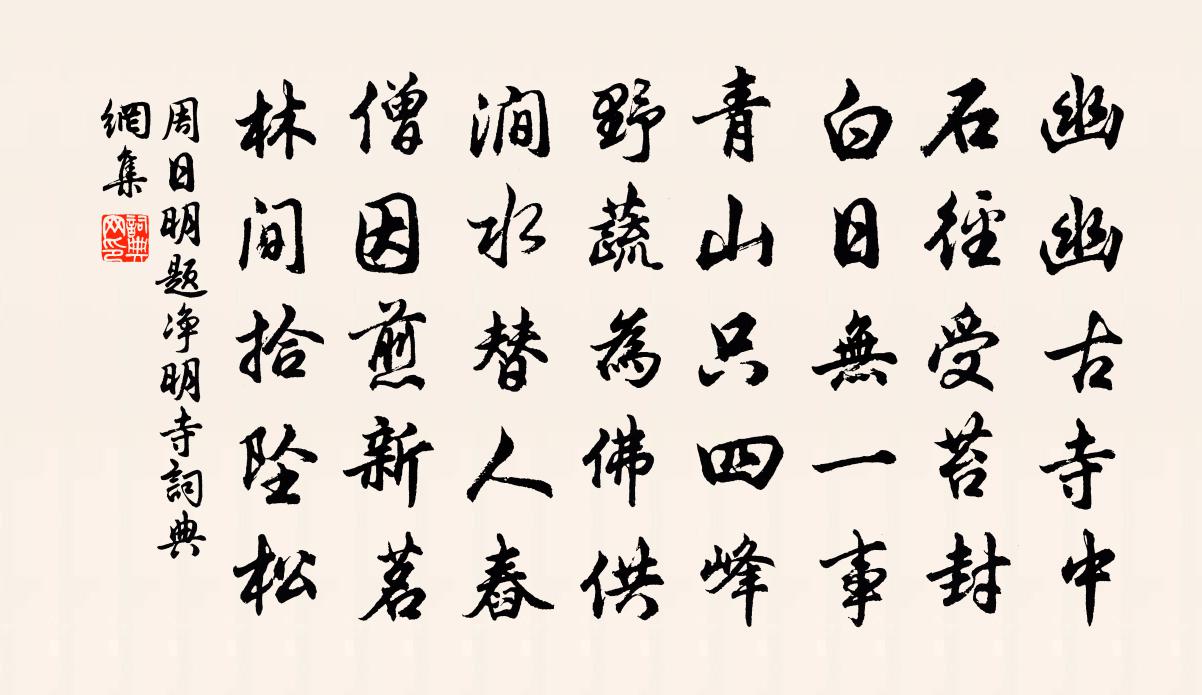 幽幽古寺中
石徑受苔封
白日無一事
青山只四峰
野蔬為佛供
澗水替人舂
僧因煎新茗
林间拾坠松
周日明题净明寺詞典
網集
詞典
网印